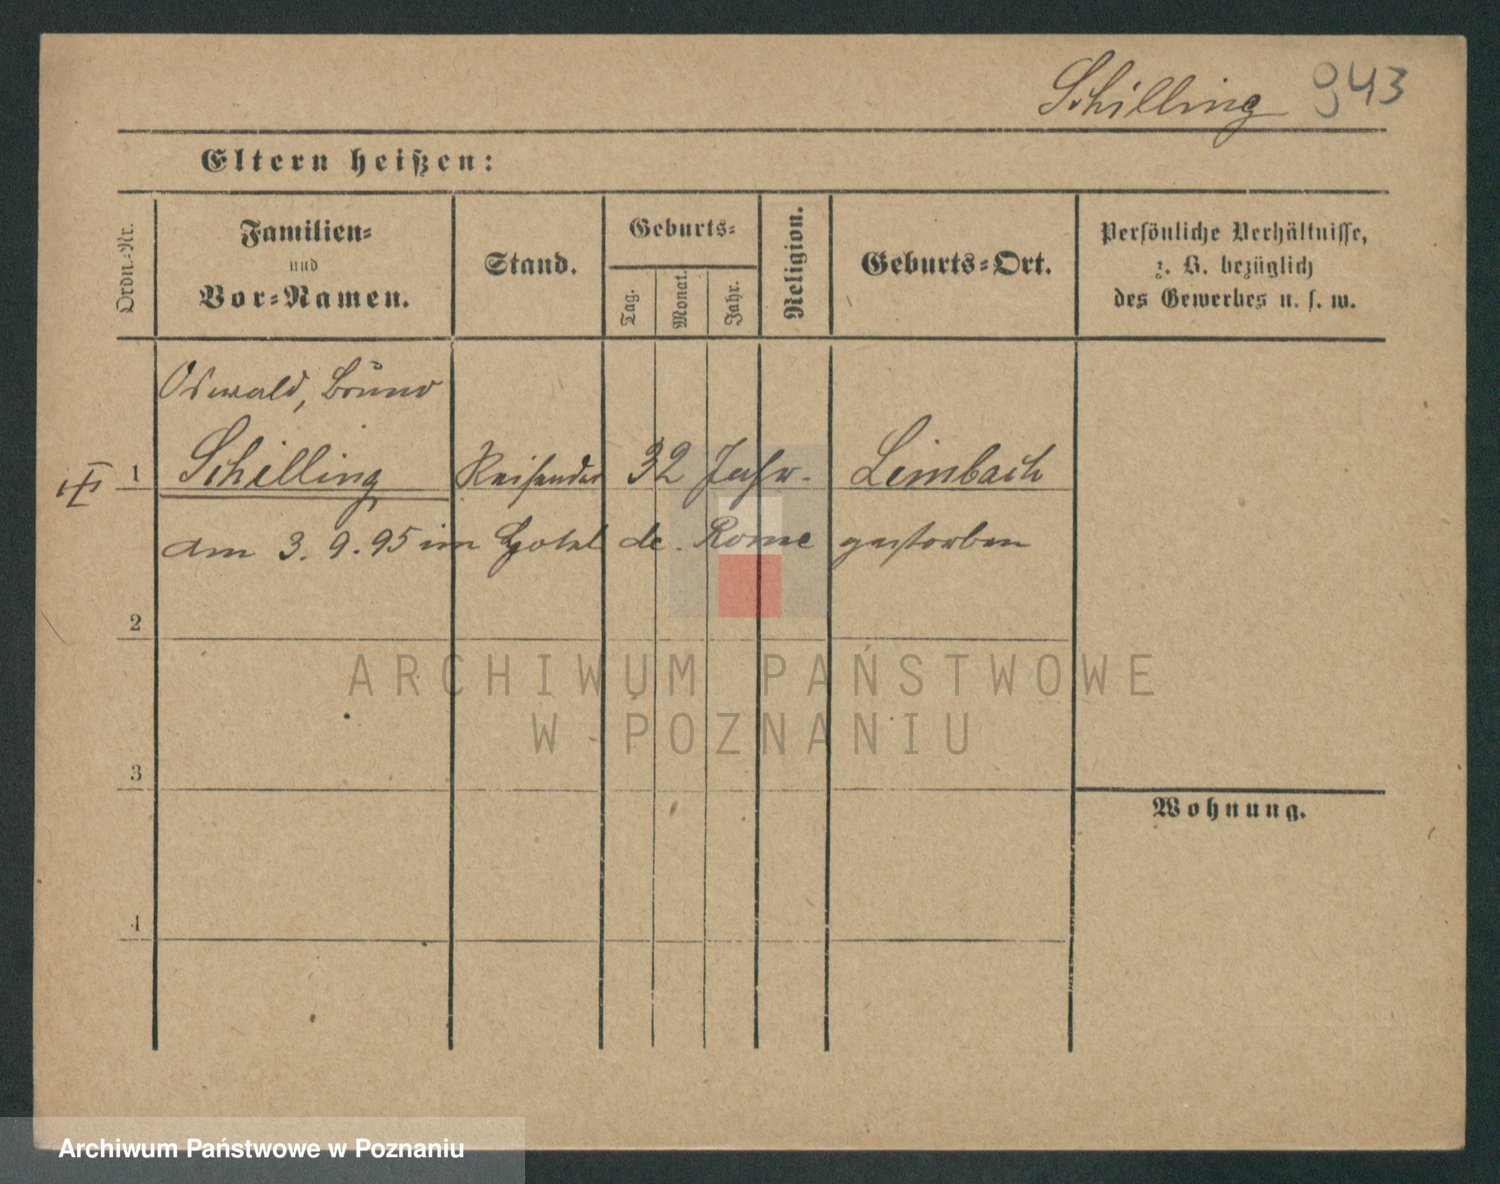 Schilling 943
Eltern heißen:
Ordn.-Nr.
Familien-
und
Vor-Namen.
Stand.
Geburts-
Tag.
Monat.
Jahr.
Religion.
Geburts-Ort.
Persönliche Verhältnisse,
z. B. bezüglich
des Gewerbes u. s. w.
Oswald, Bruno
1 Schilling Reisender 32 Jahr. Limbach
am 3. 9. 95 im Hotel de Rome gestorben
2
ARCHIWUM PAŃSTWOWE
W POZNANIU
3
Wohnung.
4
Archiwum Państwowe w Poznaniu